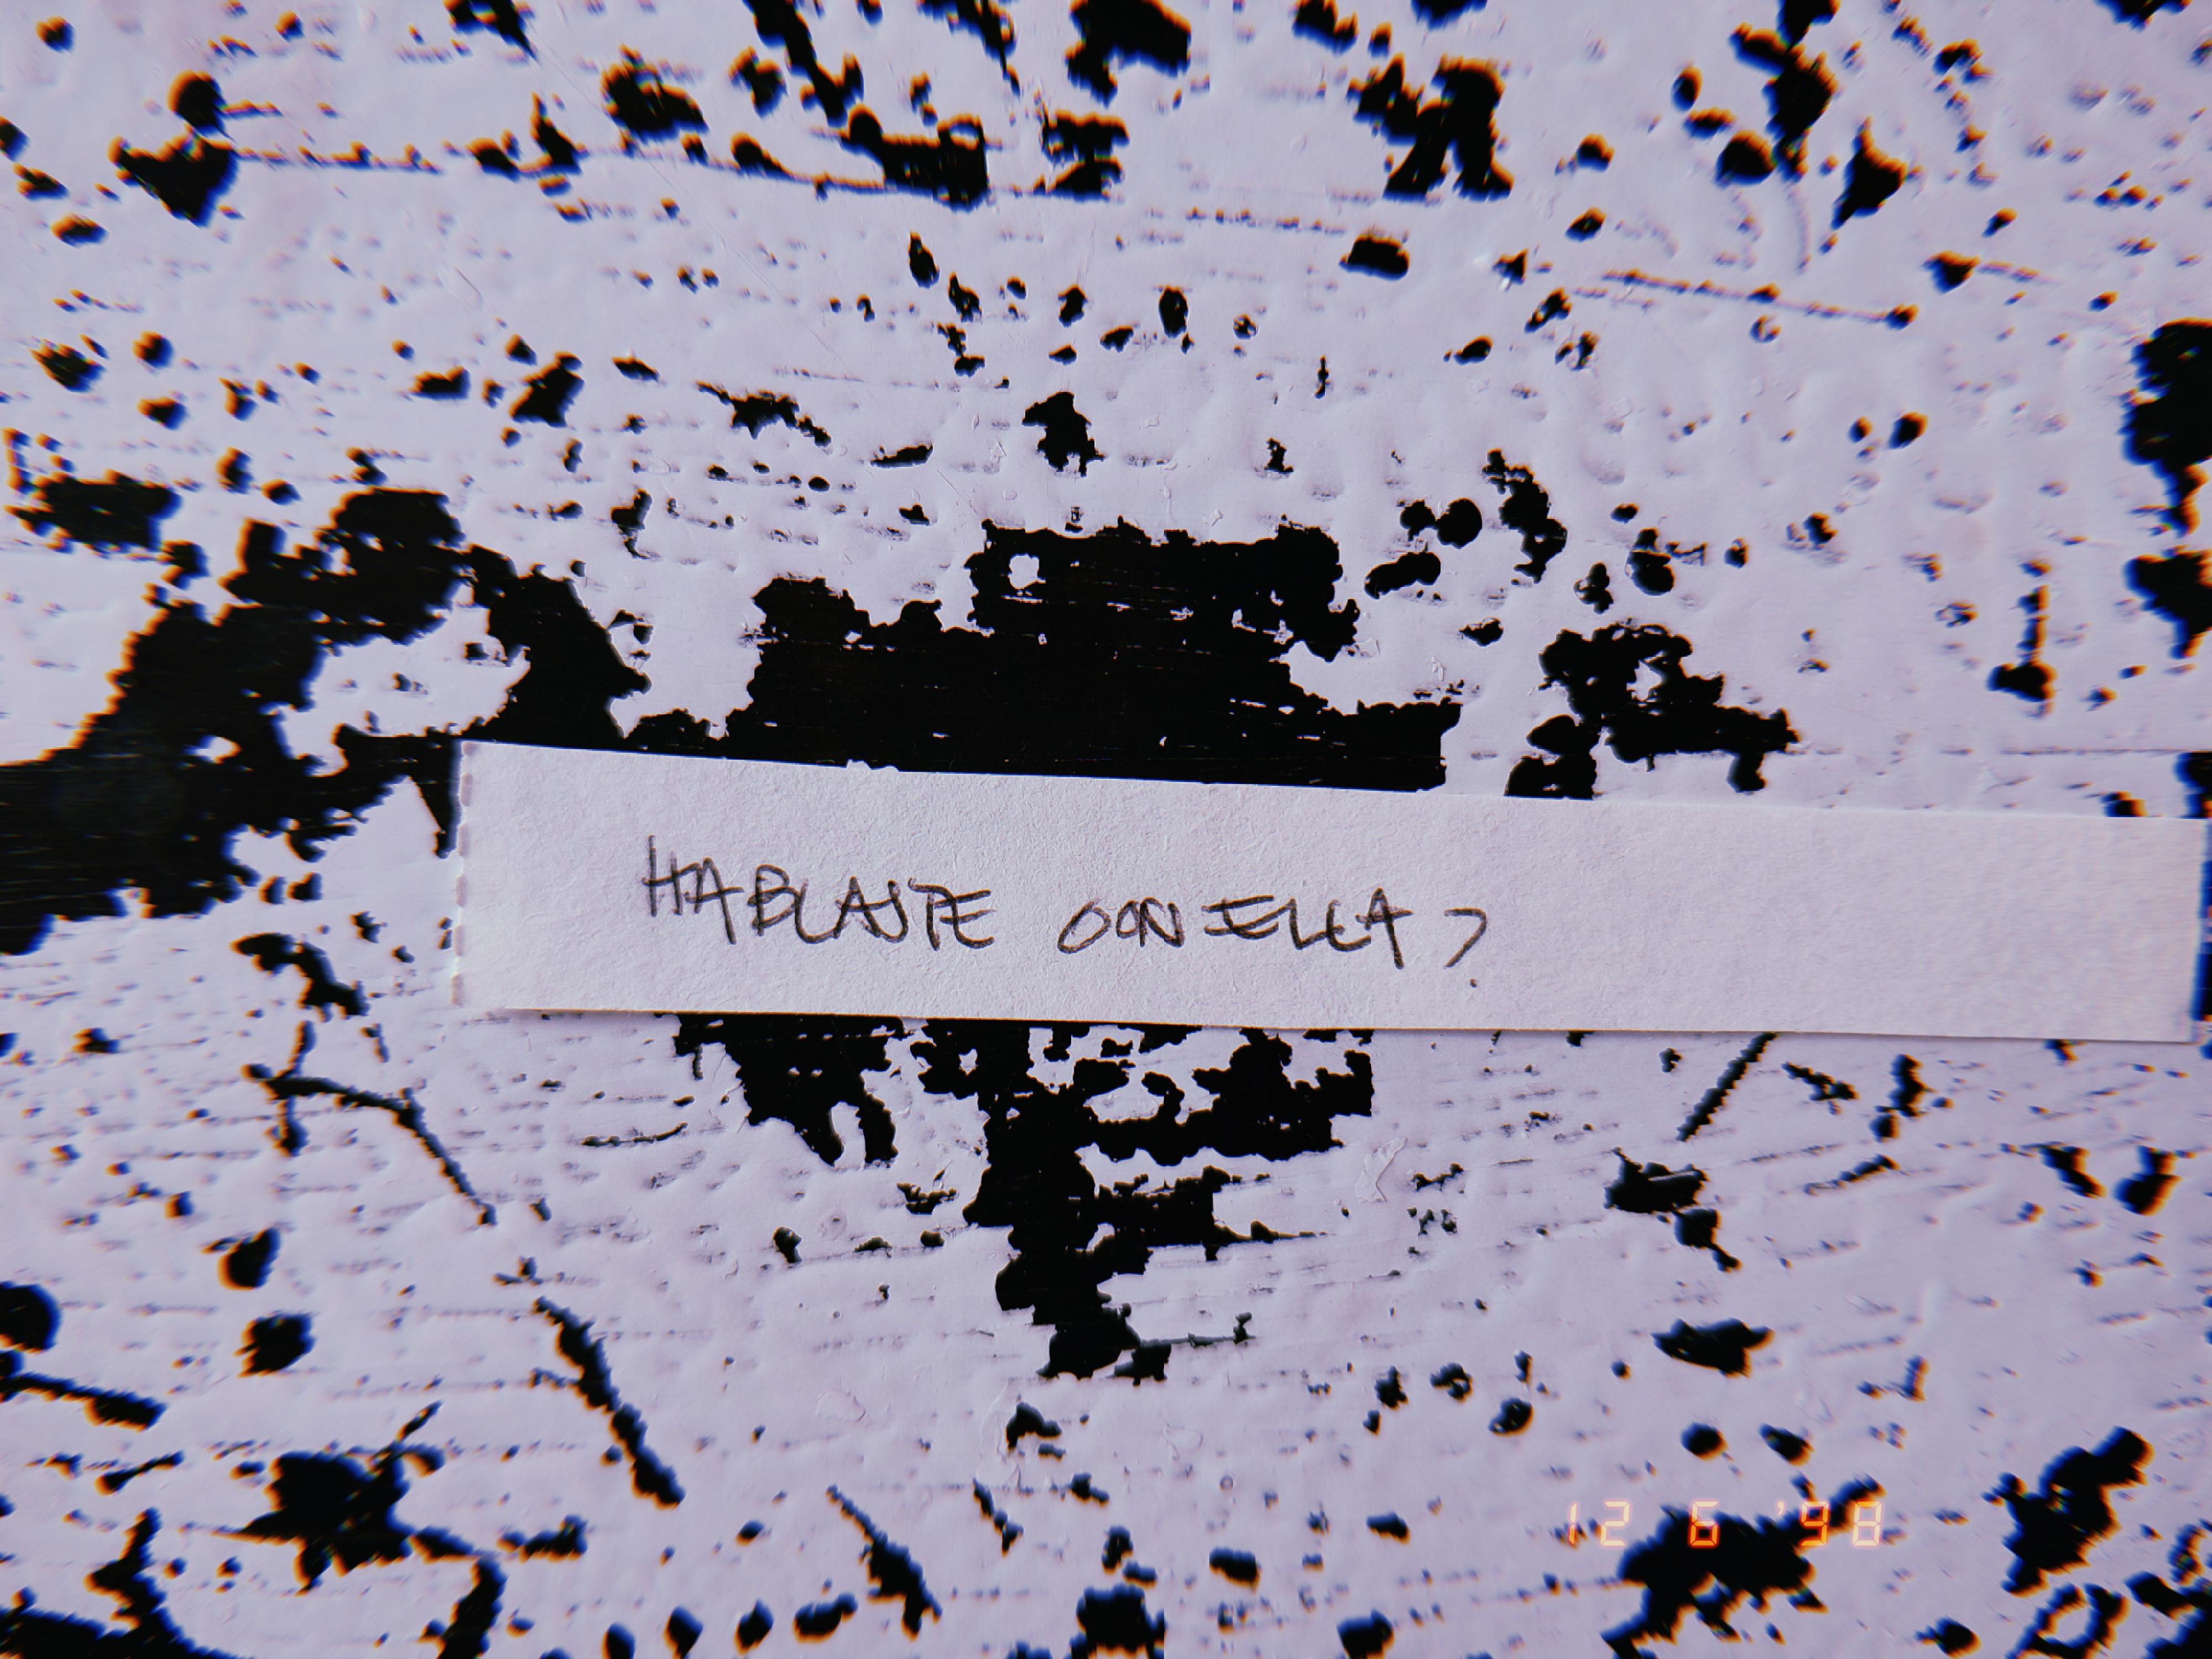 HABLASTE CON ELLA?
12 6 '98